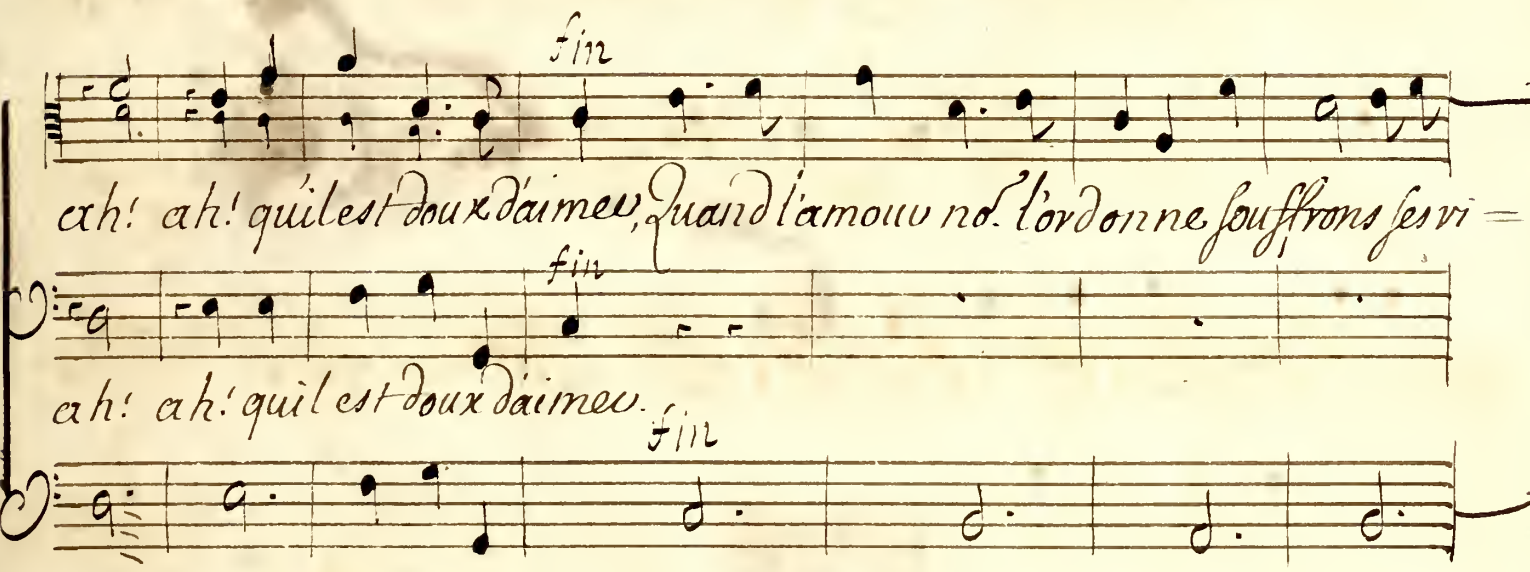 fin
ah! ah! qu'il est doux d'aimer, Quand l'amour no. l'ordonne souffrons ses ri=
fin
ah! ah! quil est doux d'aimer.
fin